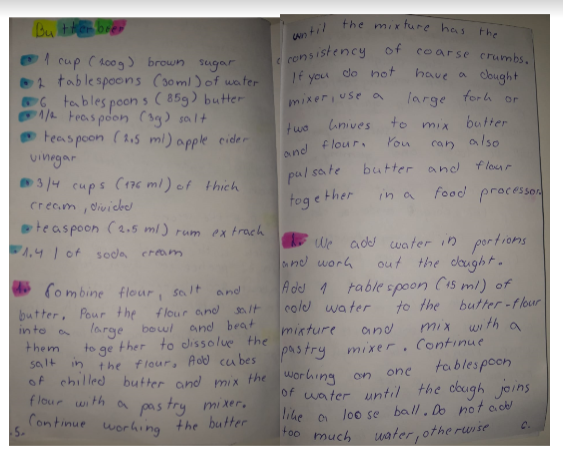 Butterbeer
1 cup (200g) brown sugar
2 tablespoons (30ml) of water
6 tablespoons (85g) butter
1/2 teaspoon (3g) salt
teaspoon (2.5 ml) apple cider
vinegar
3/4 cups (176 ml) of thich
cream, divided
teaspoon (2.5 ml) rum extrach
1.4 l of soda cream
1. Combine flour, salt and
butter. Pour the flour and salt
into a large bowl and beat
them together to dissolve the
salt in the flour. Add cubes
of chilled butter and mix the
flour with a pastry mixer.
Continue working the butter
.5.
until the mixture has the
consistency of coarse crumbs.
If you do not have a dought
mixer, use a large fork or
two knives to mix butter
and flour. You can also
pulsate butter and flour
together in a food processor
2. We add water in portions
and work out the dought.
Add 1 tablespoon (15 ml) of
cold water to the butter-flour
mixture and mix with a
pastry mixer. Continue
working on one tablespoon
of water until the dough joins
like a loose ball. Do not add
too much water, otherwise